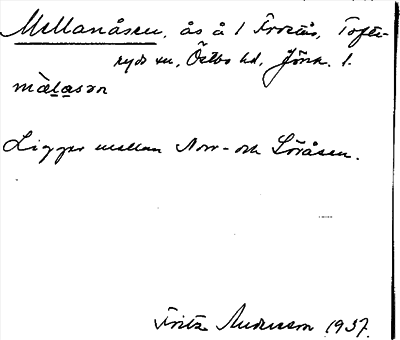 Mellanåsen, ås å 1 Frostås, Tofte-
ryds sn, Östbo hd, Jönk. l.
mèlạsọn
Ligger mellan Norr- och Söråsen.
Fritz Andersson 1937.